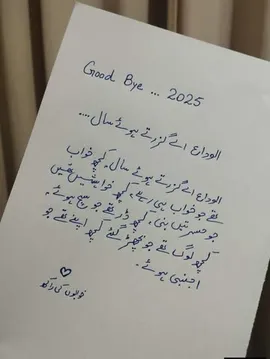 Good Bye ... 2025
الوداع اے گزرتے ہوئے سال ....
الوداع اے گزرتے ہوئے سال۔ کچھ خواب
تھے جو خواب ہی رہے۔ کچھ خواہشیں تھیں
جو حسرتیں بنی۔ کچھ ڈر تھے جو سچ ہوئے۔
کچھ لوگ تھے جو بچھڑ گئے کچھ اپنے تھے جو
اجنبی ہوئے۔
خوابوں کی راکھ